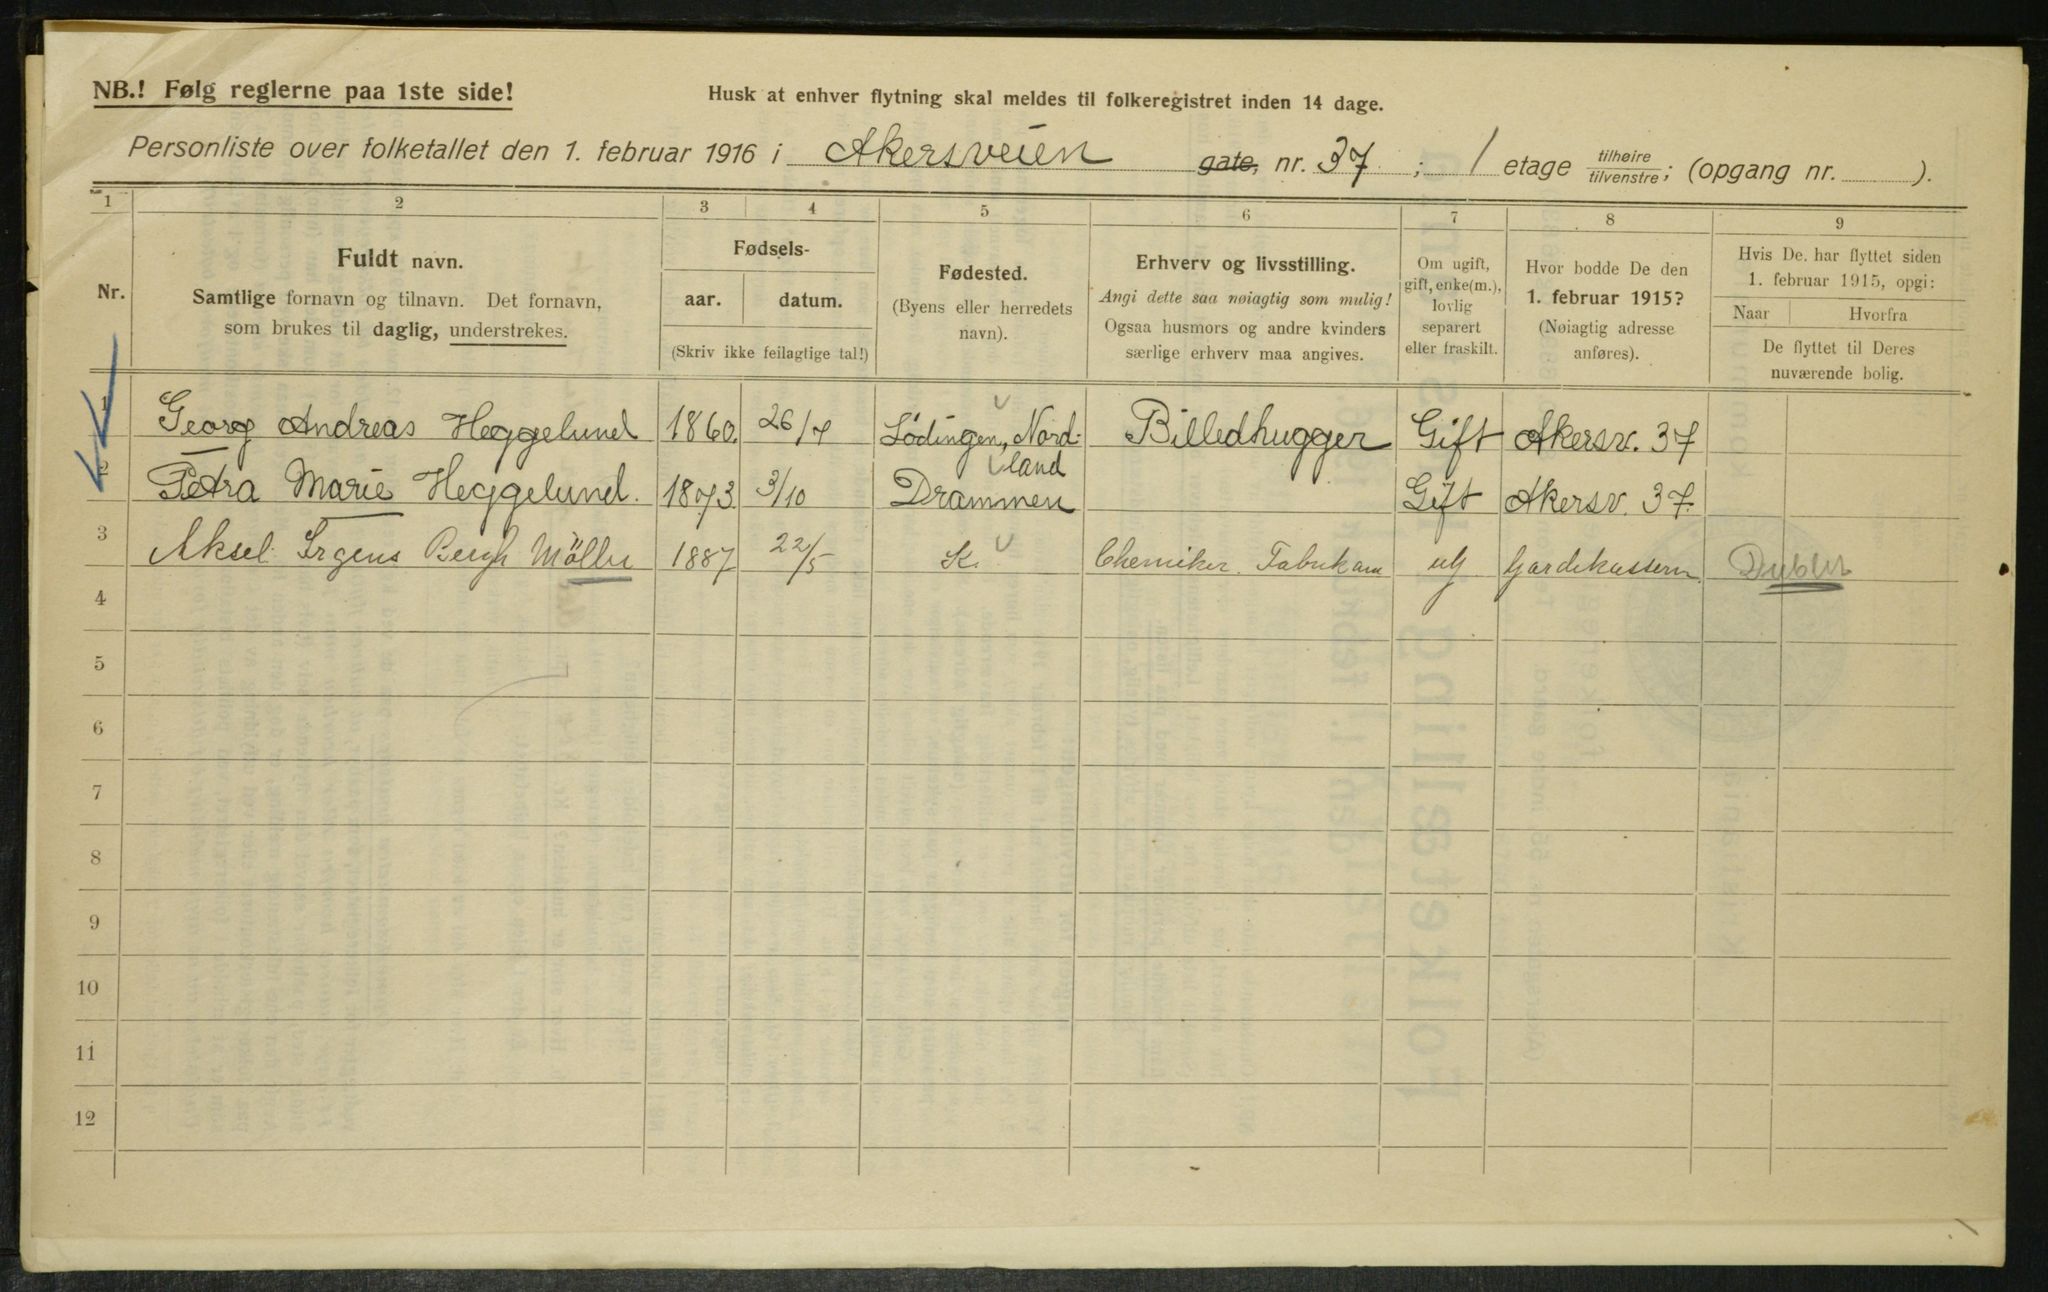 NB.! Følg reglerne paa 1ste side!
Husk at enhver flytning skal meldes til folkeregistret inden 14 dage.
Personliste over folketallet den 1. februar 1916 i Akersveien gate, nr. 37 ; 1 etage tilhøire tilvenstre ; (opgang nr. ).
1 2 3 4 5 6 7 8 9
Nr.
Fuldt navn.
Samtlige fornavn og tilnavn. Det fornavn,
som brukes til daglig, understrekes.
Fødsels-
aar. datum.
(Skriv ikke feilagtige tal!)
Fødested.
(Byens eller herredets
navn).
Erhverv og livsstilling.
Angi dette saa nøiagtig som mulig!
Ogsaa husmors og andre kvinders
særlige erhverv maa angives.
Om ugift,
gift, enke(m.),
lovlig
separert
eller fraskilt.
Hvor bodde De den
1. februar 1915?
(Nøiagtig adresse
anføres).
Hvis De. har flyttet siden
1. februar 1915, opgi:
Naar Hvorfra
De flyttet til Deres
nuværende bolig.
1 Georg Andreas Heggelund 1860. 26/7 Lødingen, Nord- Billedhugger Gift Akersv. 37
land
2 Petra Marie Heggelund. 1873. 3/10 Drammen Gift Akersv. 37.
3 Aksel Irgens Bergh Möller 1887 22/5 K. Chemiker. ug Gardekasern Dublet
4
5
6
7
8
9
10
11
12